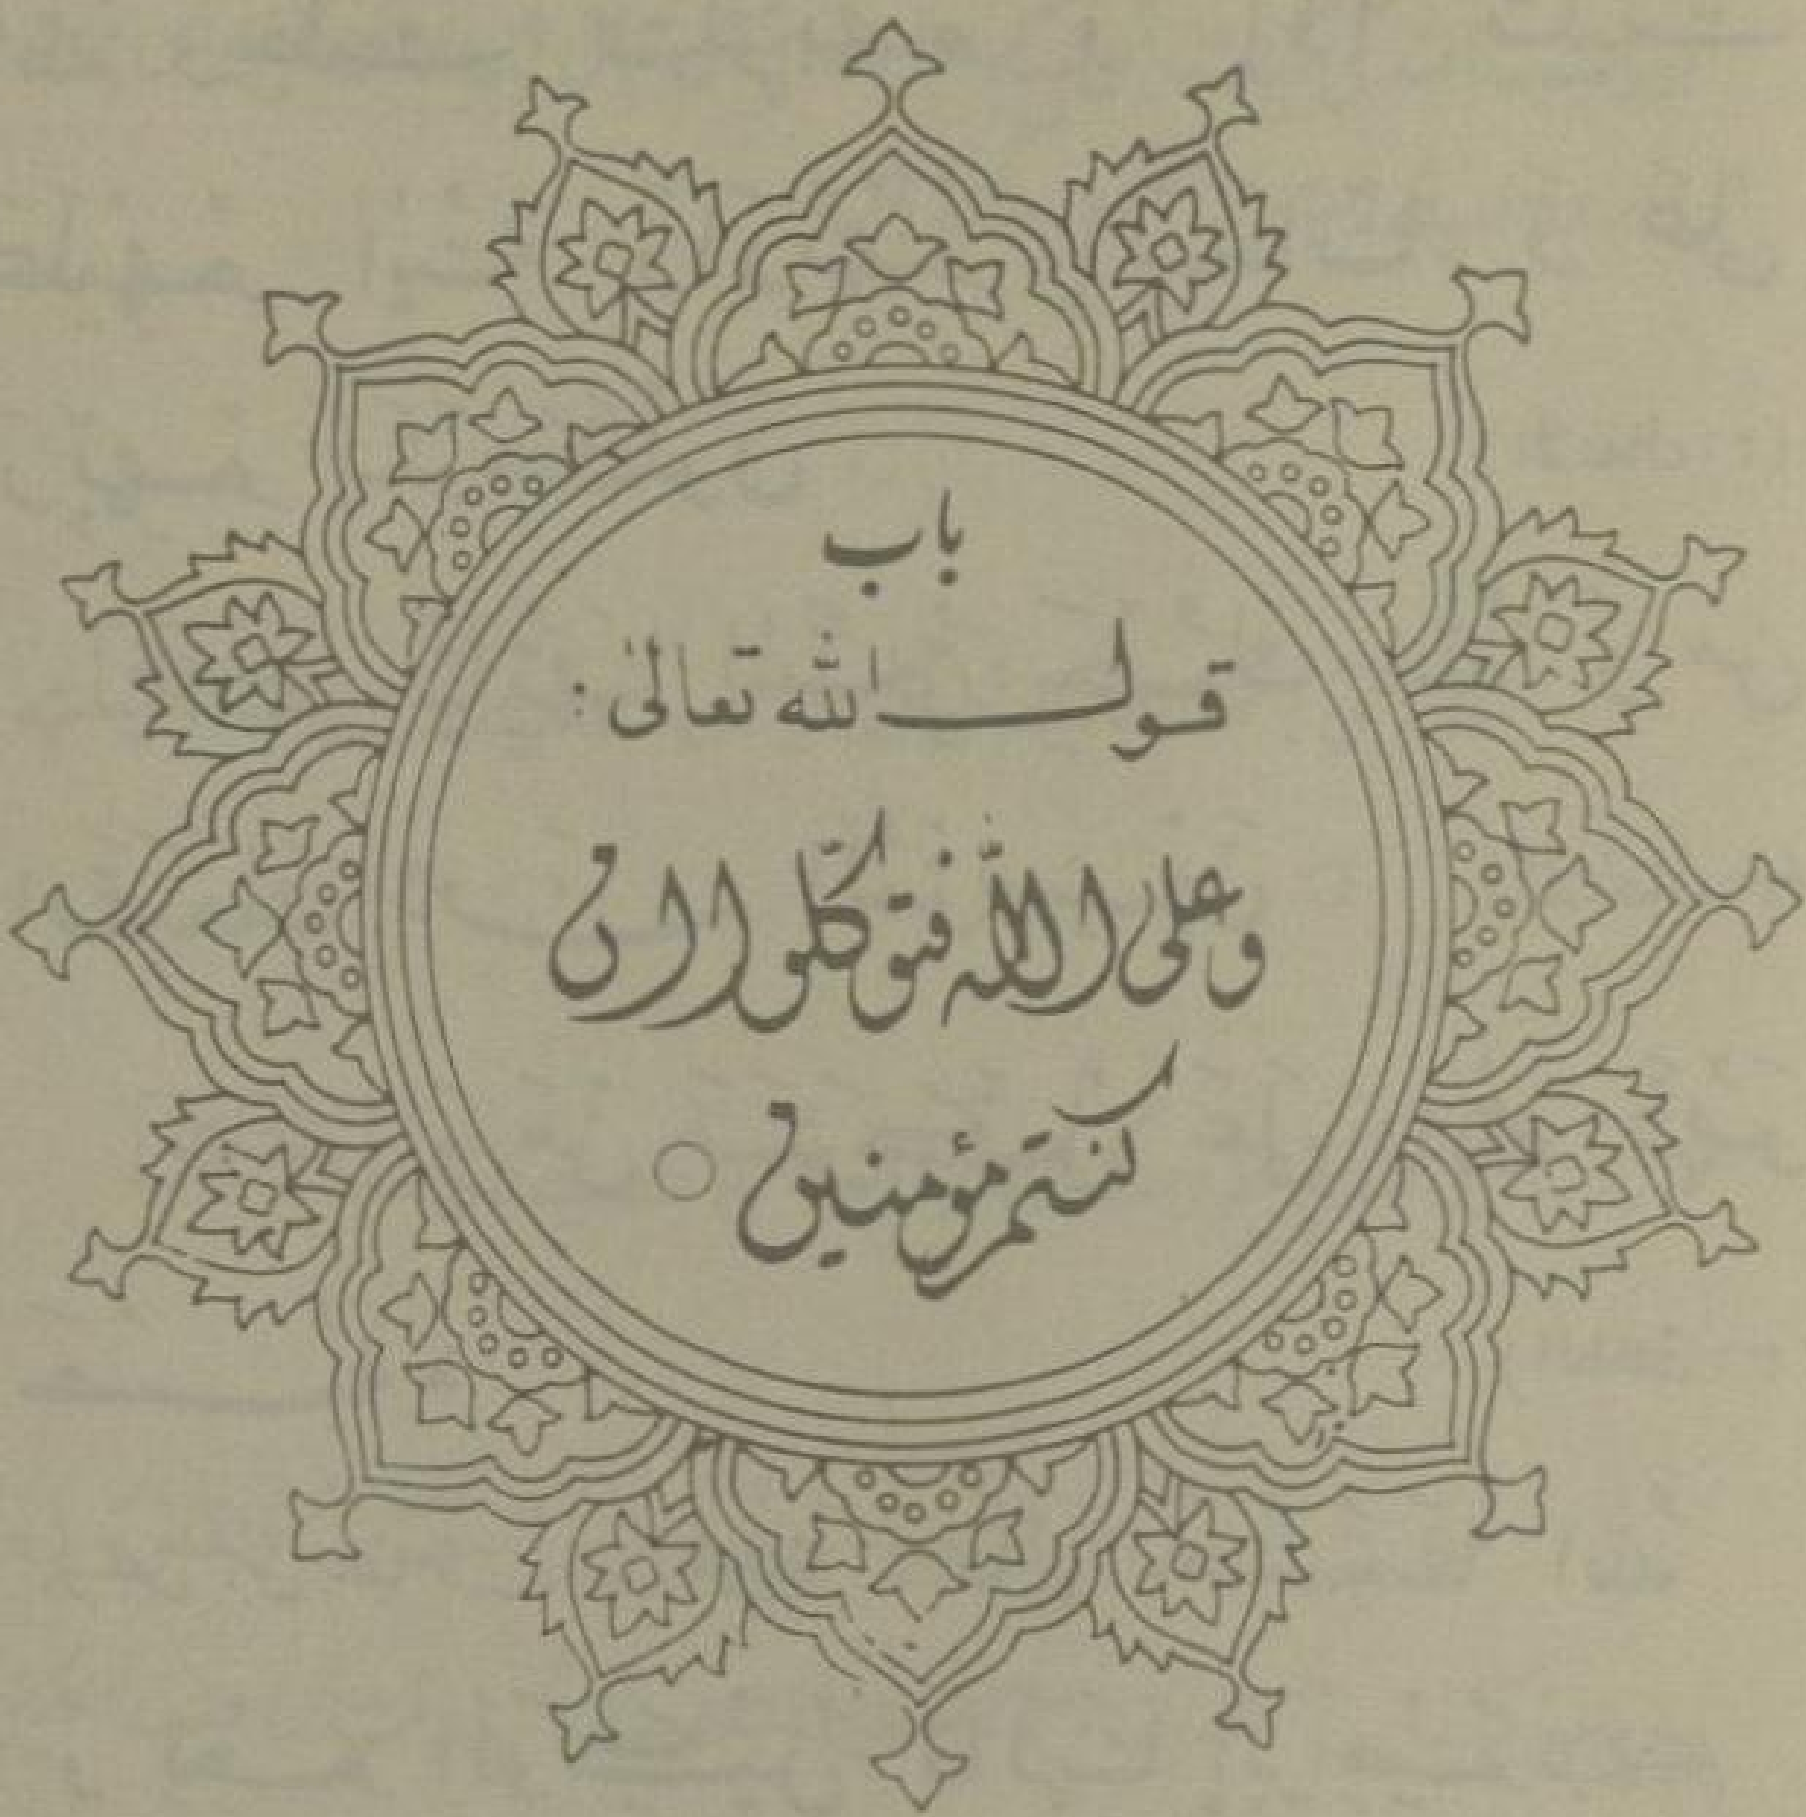 باب
قول الله تعالىٰ :
وعلى الله فتوكّلوا ان
كنتم مؤمنين